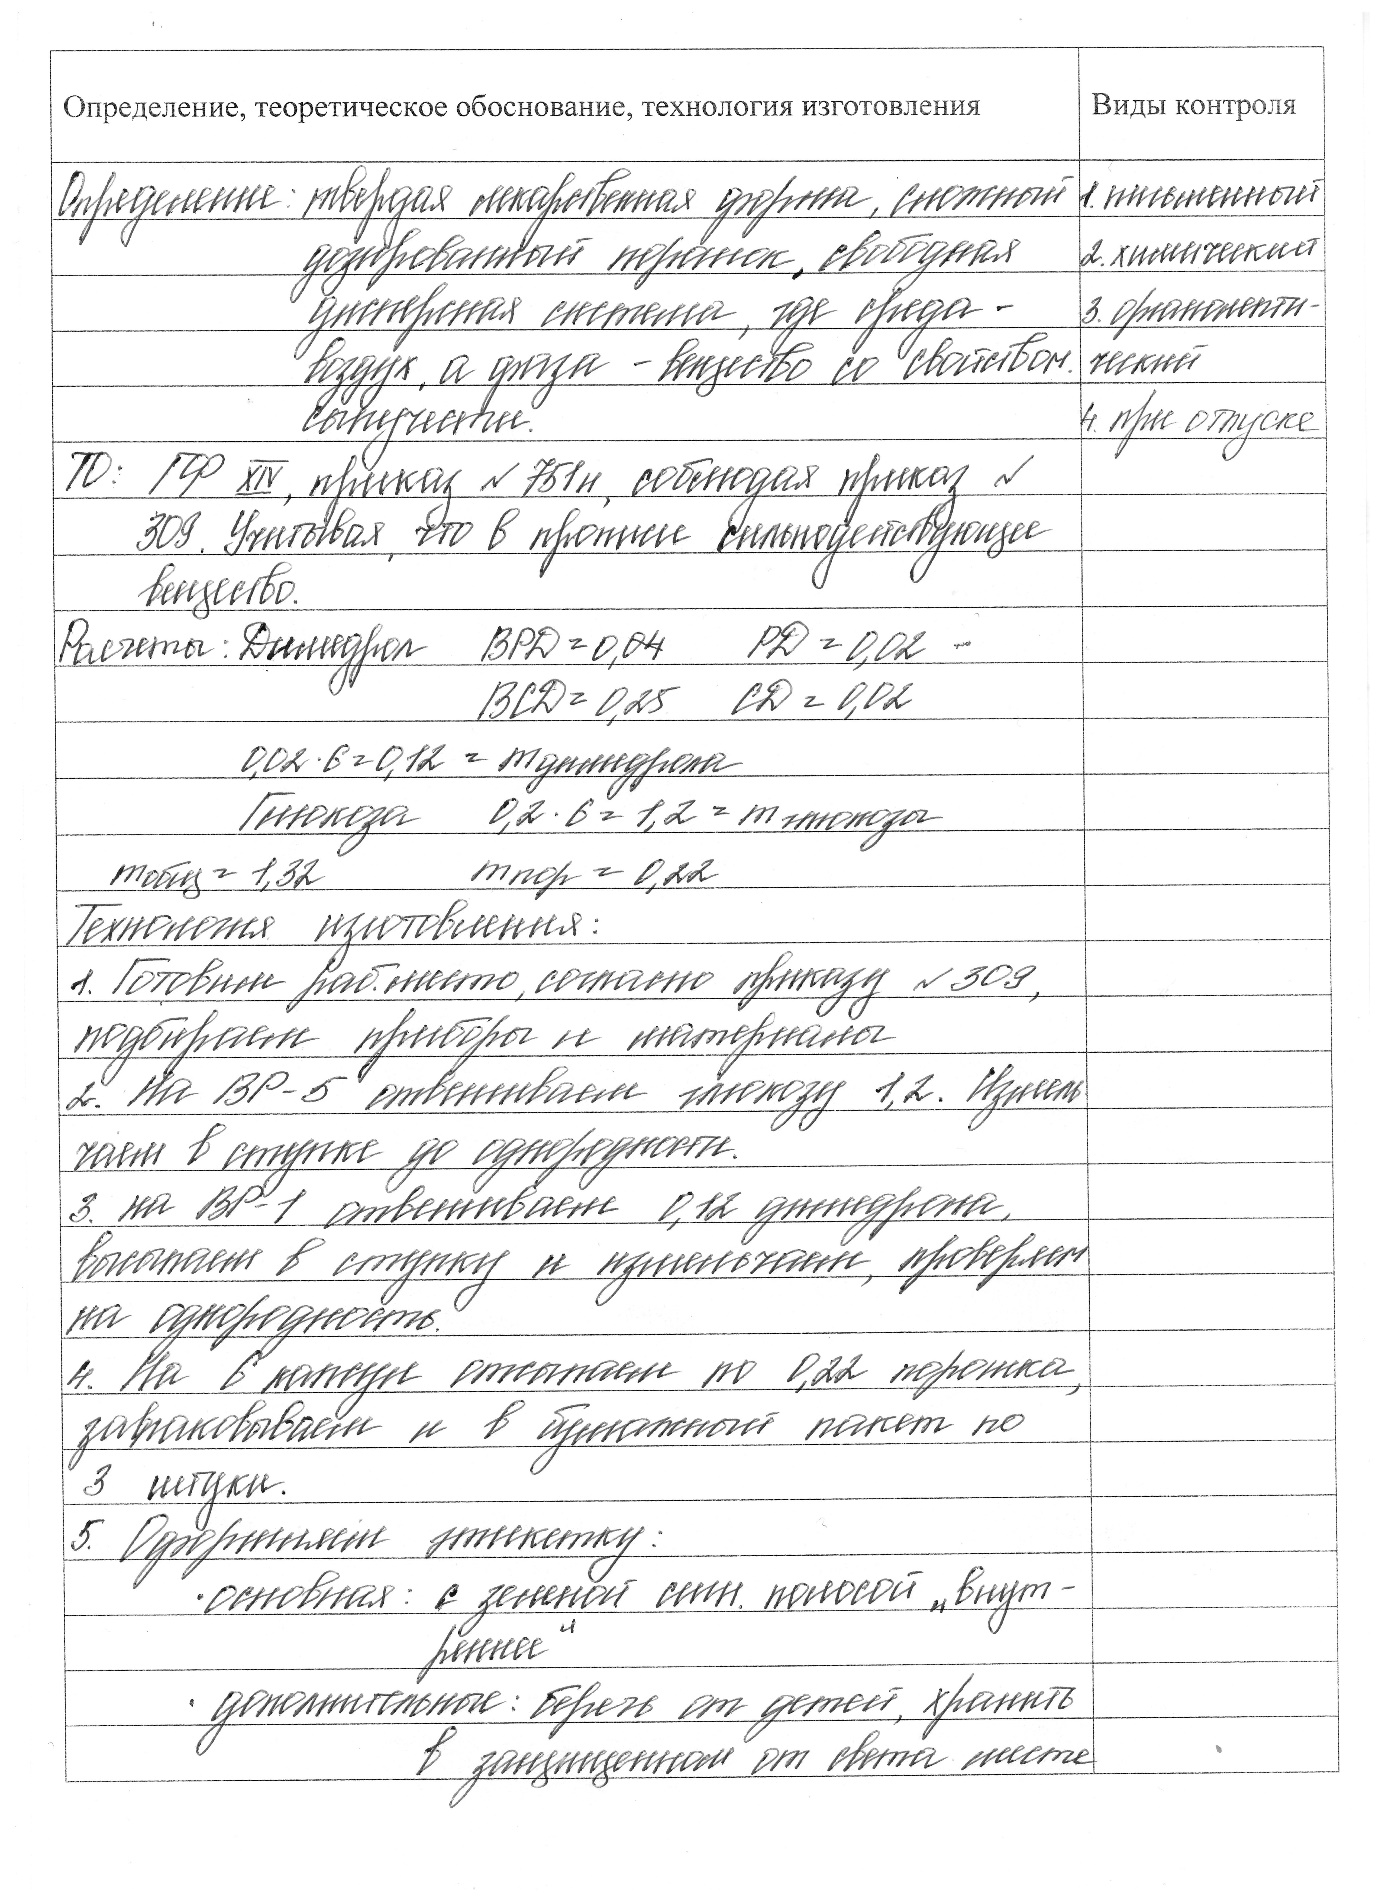 Определение, теоретическое обоснование, технология изготовления
Виды контроля
Определение: твердая лекарственная форма, сложный
дозированный порошок, свободная
дисперсная система, где среда -
воздух, а фаза - вещество со свойством
сыпучести.
1. письменный
2. химический
3. органолепти-
ческий
4. при отпуске
ТО: ГФ XIV, приказ № 751н, соблюдая приказ №
309. Учитывая, что в прописи сильнодействующее
вещество.
Расчеты: Димедрол ВРД = 0,04 РД = 0,02 -
ВСД = 0,25 СД = 0,02
0,02 · 6 = 0,12 = m димедрола
Глюкоза 0,2 · 6 = 1,2 = m глюкозы
m общ = 1,32 m пор = 0,22
Технология изготовления:
1. Готовим раб. место, согласно приказу № 309,
подбираем приборы и материалы
2. На ВР-5 отвешиваем глюкозу 1,2. Измель
чаем в ступке до однородности.
3. на ВР-1 отвешиваем 0,12 димедрола,
высыпаем в ступку и измельчаем, проверяем
на однородность.
4. На 6 капсул отсыпаем по 0,22 порошка,
запаковываем и в бумажный пакет по
3 штуки.
5. Оформляем этикетку:
· основная: с зеленой сигн. полосой „внут-
реннее"
· дополнительные: беречь от детей, хранить
в защищенном от света месте